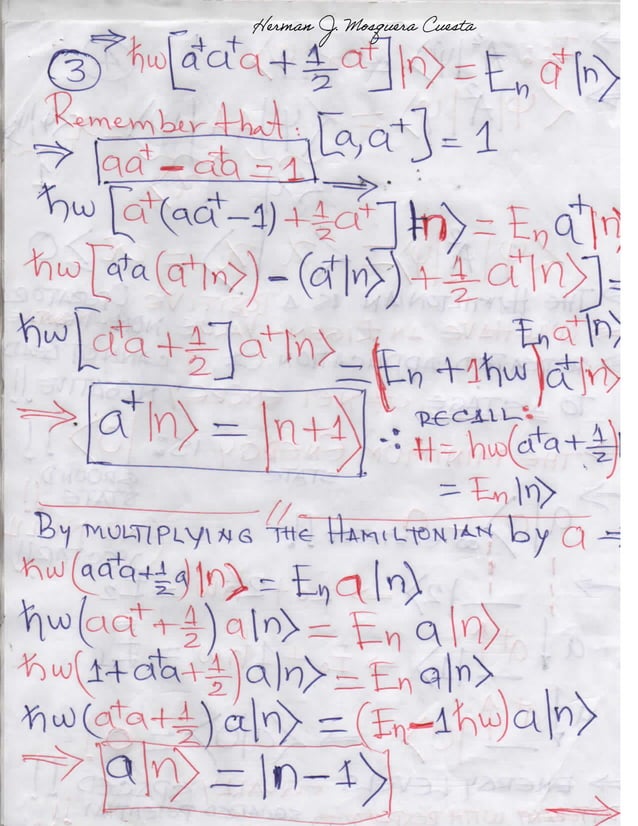 Herman J. Mosquera Cuesta
③ ⇒ ħw[a⁺a⁺a + 1/2 a⁺]|n⟩ = En a⁺|n⟩
Remember that: [a, a⁺] = 1
⇒ aa⁺ - a⁺a = 1 ⇒ ∴
ħw [a⁺(aa⁺-1) + 1/2 a⁺] |n⟩ = En a⁺|n
ħw [a⁺a (a⁺|n⟩) - (a⁺|n⟩) + 1/2 a⁺|n⟩] =
En a⁺|n⟩
ħw [a⁺a + 1/2] a⁺|n⟩ = (En + 1ħw) a⁺|n⟩
⇒ a⁺|n⟩ = |n+1⟩ ∴ RECALL:
H = ħw(a⁺a + 1/2)
= En|n⟩
By MULTIPLYING THE HAMILTONIAN by a =
ħw(aa⁺a + 1/2 a)|n⟩ = En a|n⟩
ħw(aa⁺ + 1/2) a|n⟩ = En a|n⟩
ħw(1 + a⁺a + 1/2) a|n⟩ = En a|n⟩
ħw(a⁺a + 1/2) a|n⟩ = (En - 1ħw) a|n⟩
⇒ a|n⟩ = |n-1⟩